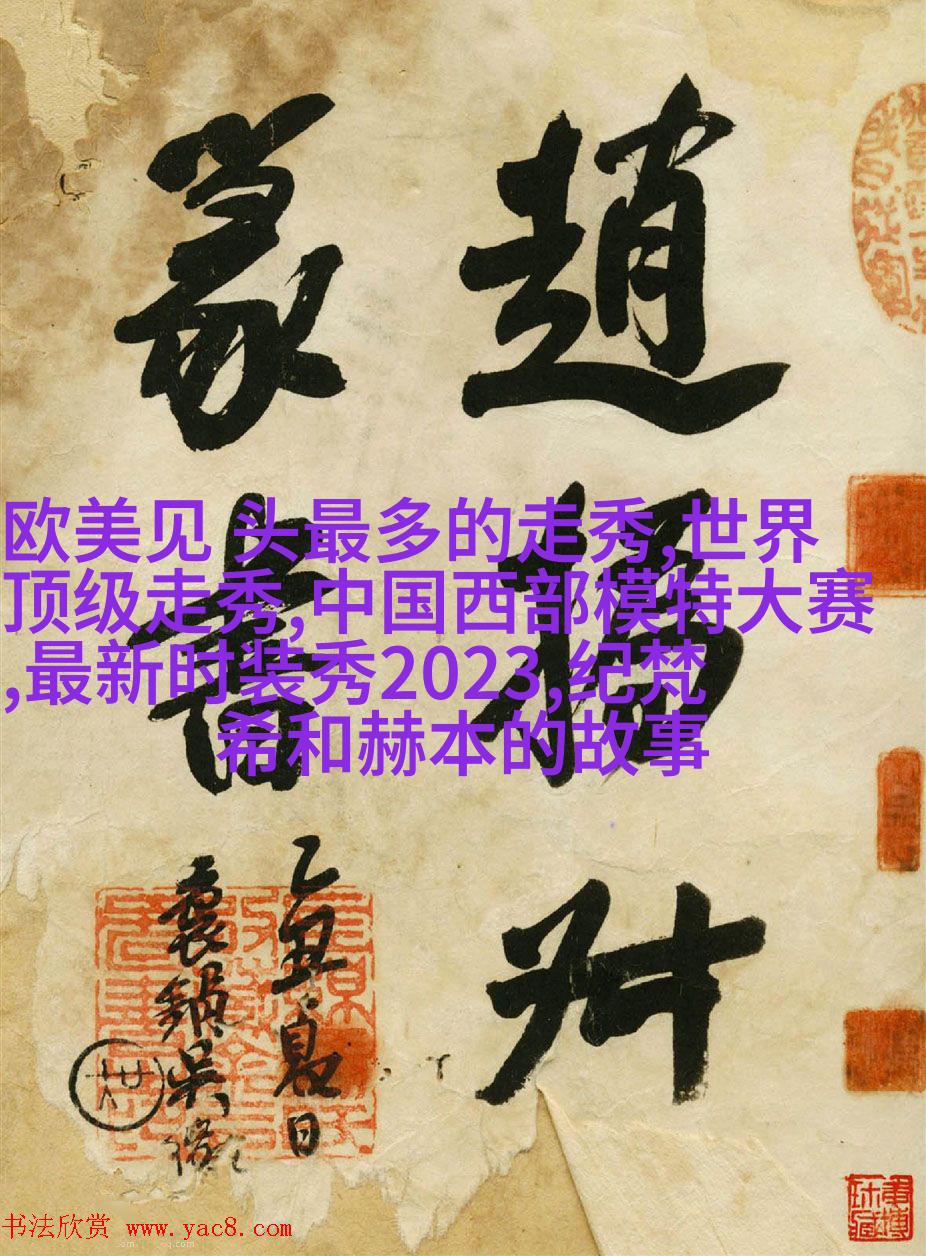 趙撝叔
篆書
乙亥夏日
欧美见 头最多的走秀,世界
顶级走秀,中国西部模特大赛
,最新时装秀2023,纪梵
希和赫本的故事
书法欣赏 www.yac8.com